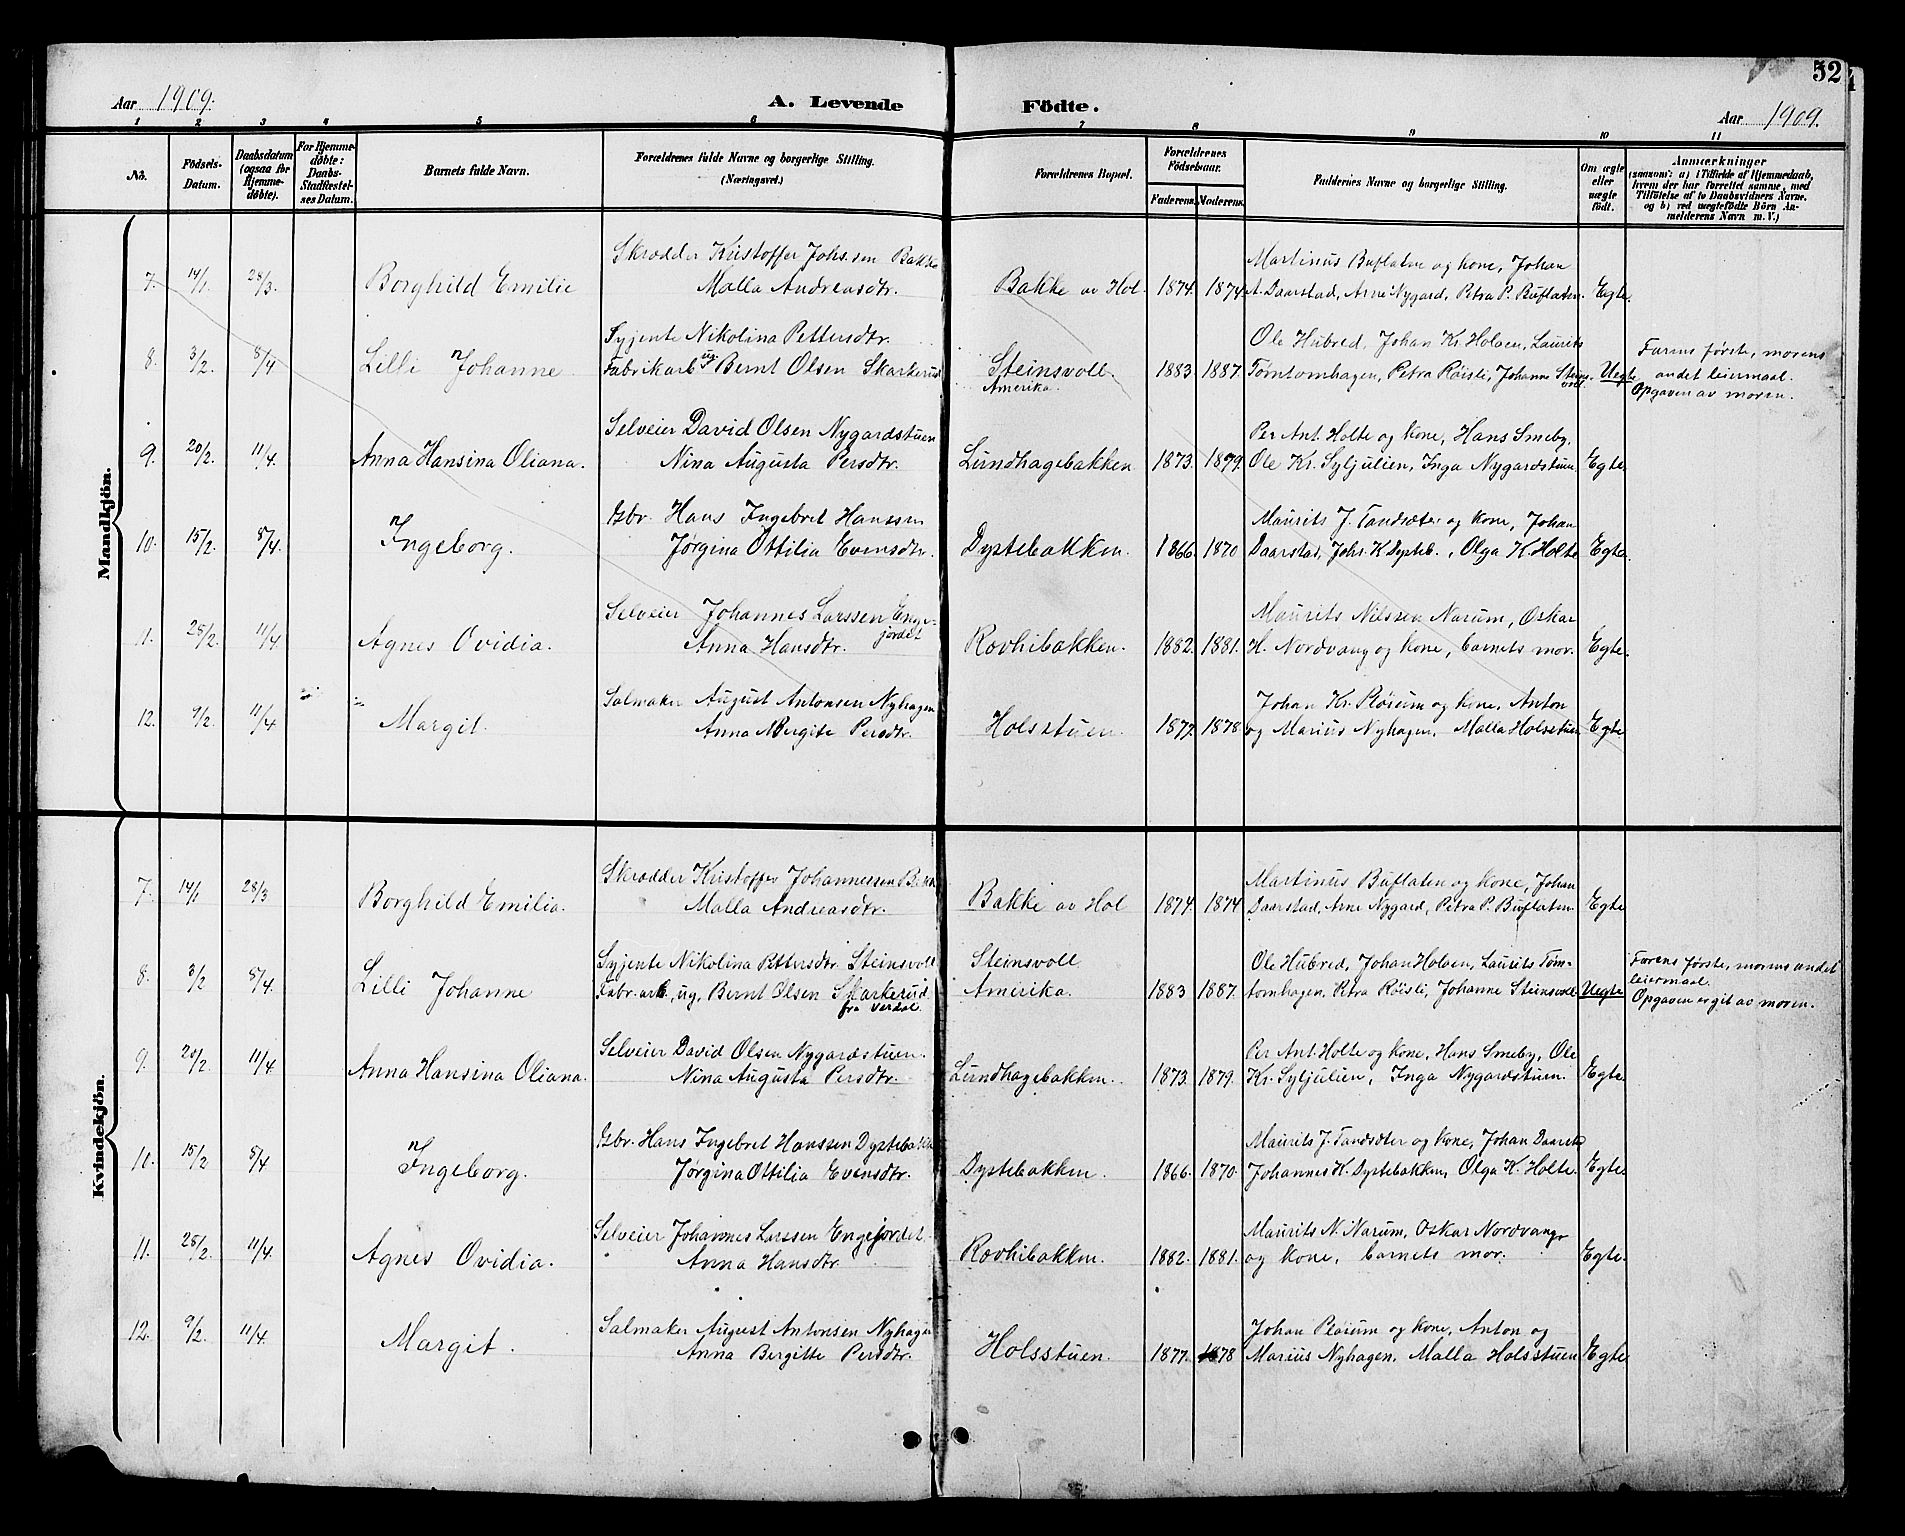 Aar 1909. A. Levende Födte. Aar 1909. 52
1 2 3 4 5 6 7 8 9 10 11
No. Födsels-Datum. Daabsdatum (ogsaa for Hjemmedøbte). For Hjemmedøbte: Daabs-Stadfæstelses Datum. Barnets fulde Navn. Forældrenes fulde Navne og borgerlige Stilling. (Næringsvei.) Forældrenes Bopæl. Forældrenes Födselsaar. Faderens. Moderens. Faddernes Navne og borgerlige Stilling. Om ægte eller uægte født. Anmærkninger (saasom: a) i Tilfælde af Hjemmedaab, hvem der har forrettet samme, med Tilföielse af to Daabsvidners Navne. og b) ved uægtefödte Börn Anmelderens Navn m. V.)
Mandkjön.
Skrædder Kristoffer Johs.sen Bakke Martinus Buflaten og kone, Johan
7. 14/1 28/3 Borghild Emilie Malla Andreasdtr. Bakke av Hol. 1874. 1874 A. Daarstad, Arne Nygard, Petra P. Buflaten. Egte.
Syjente Nikolina Pettersdtr. Ole Hubred, Johan Kr. Holøen, Laurits Farens første, morens
8. 3/2. 8/4 Lilli Johanne Fabrikarb. ug. Bernt Olsen Skarkerud Steinsvoll. Amerika. 1883 1887. Tømtomhagen, Petra Röisli, Johanne Steinsvoll. Uegte andet leiermaal.
Opgaven av moren.
Selveier David Olsen Nygardstuen Per Ant. Holte og kone, Hans Smeby,
9. 20/2. 11/4. Anna Hansina Oliana. Nina Augusta Persdtr. Lundhagebakken 1873. 1879. Ole Kr. Syljulien, Inga Nygardstuen. Egte.
Gbr. Hans Ingebret Hanssen Maurits J. Tandsæter og kone, Johan
10. 15/2. 8/4. Ingeborg. Jørgina Ottilia Evensdtr. Dystebakken. 1866. 1870 Daarstad, Johs. K Dysteb., Olga K. Holte Egte.
Selveier Johannes Larssen Engejordet Maurits Nilssen Narum, Oskar
11. 28/2. 11/4 Agnes Ovidia. Anna Hansdtr. Rovhibakken. 1882. 1881. H. Nordvang og kone, barnets mor. Egte.
Salmaker August Antonsen Nyhagen Johan Kr. Plöium og kone, Anton
12. 9/2. 11/4 Margit. Anna Bergite Persdtr. Holsstuen. 1877. 1878. og Marius Nyhagen, Malla Holsstuen Egte
Kvindekjön.
Skrædder Kristoffer Johannessen Bakke Martinus Buflaten og kone, Johan
7. 14/1 28/3 Borghild Emilia. Malla Andreasdtr. Bakke av Hol 1874. 1874 Daarstad, Arne Nygard, Petra P. Buflaten Egte
Syjente Nikolina Pettersdtr. Steinsvoll Steinsvoll Ole Hubred, Johan Holøen, Laurits Tøm- Farens første, morens andet
8. 3/2 8/4. Lilli Johanne Fabr.arb., ug. Bernt Olsen Skarkerud fra Verdal. Amerika. 1883 1887. tomhagen, Petra Röisli, Johanne Steinsvoll Uegte leiermaal.
Opgaven er git av moren.
Selveier David Olsen Nygardstuen. Per Ant. Holte og kone, Hans Smeby, Ole
9. 20/2. 11/4 Anna Hansina Oliana. Nina Augusta Persdtr. Lundhagebakken. 1873. 1879. Kr. Syljulien, Inga Nygardstuen. Egte.
Gbr. Hans Ingebret Hanssen Dystebakk Maurits J. Tandsæter og kone, Johan Daarstad
10. 15/2 8/4 Ingeborg. Jørgina Ottilia Evensdtr. Dystebakken. 1866. 1870. Johannes K. Dystebakken, Olga K. Holte. Egte.
Selveier Johannes Larssen Engejordet. Maurits N. Narum, Oskar Nordvang
11. 28/2. 11/4. Agnes Ovidia. Anna Hansdtr. Rovhibakken. 1882. 1881. og kone, barnets mor. Egte.
Salmaker August Antonsen Nyhagen Johan Plöium og kone, Anton og
12. 9/2. 11/4. Margit. Anna Bergitte Persdtr. Holsstuen. 1877. 1878 Marius Nyhagen, Malla Holsstuen Egte